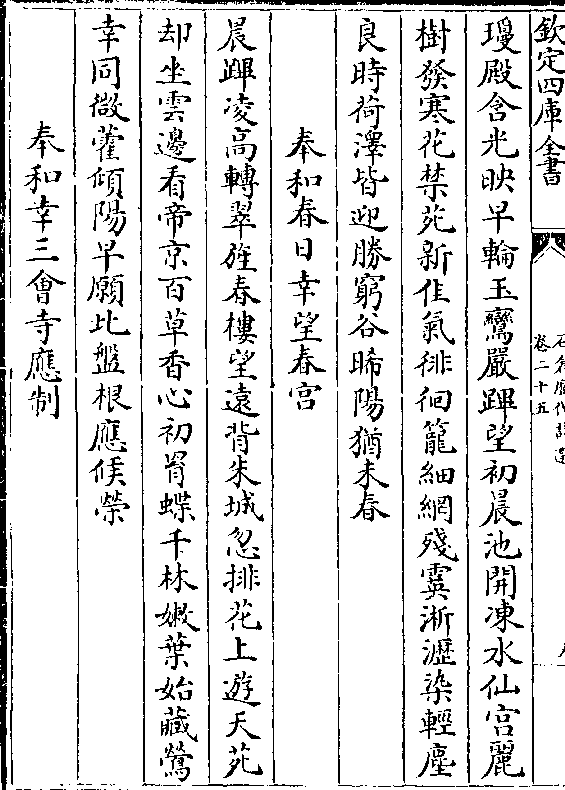 欽定四庫全書
石倉歴代詩選
卷二十五
璚殿含光映早輪玉鸞嚴蹕望初晨池開凍水仙宫麗
樹發寒花禁苑新佳氣徘徊籠細網殘霙淅瀝染輕塵
良時荷澤皆迎勝窮谷晞陽猶未春
奉和春日幸望春宫
晨蹕凌高轉翠旌春樓望遠背朱城忽排花上遊天苑
却坐雲邊看帝京百草香心初罥蝶千林嫩葉始藏鶯
幸同㣲藿傾陽早願比盤根應候榮
奉和幸三會寺應制